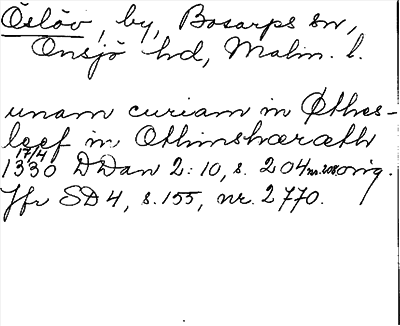 Öslöv, by, Bosarps sn,
Onsjö hd, Malm. l.
unam curiam in Øthes-
leef in Othinshæræth
17/4
1330 DDan 2:10, s. 204 m. orig.
Jfr SD 4, s. 155, nr. 2770.